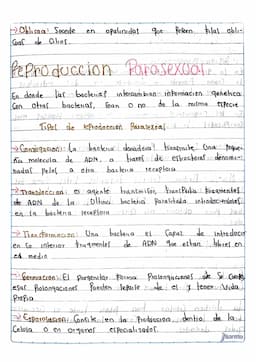 → Oblicua: Sucede en opalinidos que tienen filas oblicuas de Cilios.
Reproduccion Parasexual
En donde las bacterias intercambian informacion genetica
con otras bacterias, sean o no de la misma especie
Tipos de reproduccion Parasexual
→ Conjugacion: La bacteria donadora transmite una pequeña
molecula de ADN a traves de estructuras denominadas
pelos, a otra bacteria receptora
→ Transduccion: El agente transmisor transporta fragmentos
de ADN de la bacteria parasitada
en la bacteria receptora
→ Transformacion: Una bacteria es capaz de introducir
en su interior fragmentos de ADN que estan libres en
el medio
Gemacion: El progenitor forma Prolongaciones de su
Prolongaciones Pueden de el y tener vida
Propia
→ Esporulacion: Consiste en la Produccion dentro de la
Celula o en organos especializados.